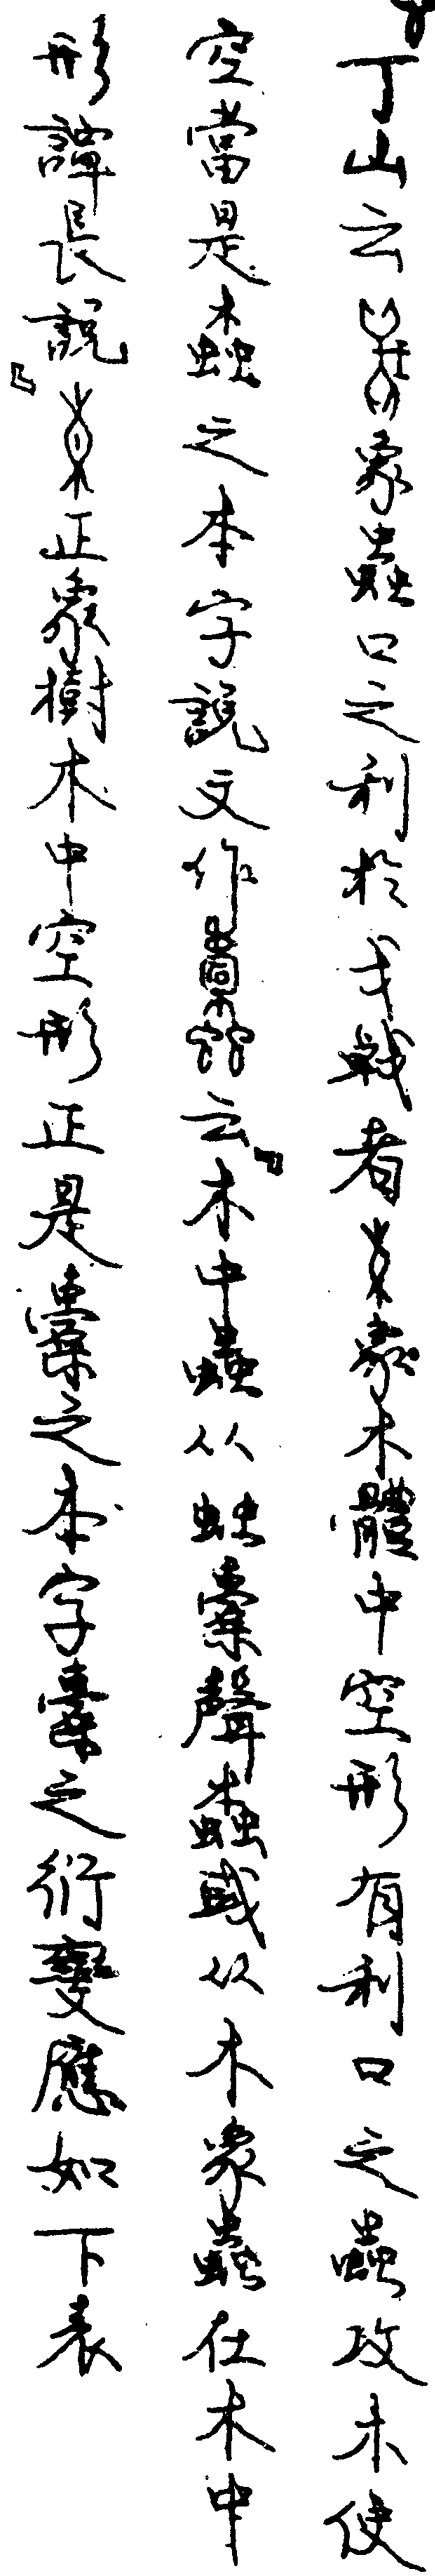 丁山云象蟲口之利於戈戟者象木體中空形有利口之蟲攻木使
空當是螙之本字說文作云『木中蟲从䖵橐聲螙或从木象蟲在木中
形譚長說』正象樹木中空形正是橐之本字橐之衍變應如下表